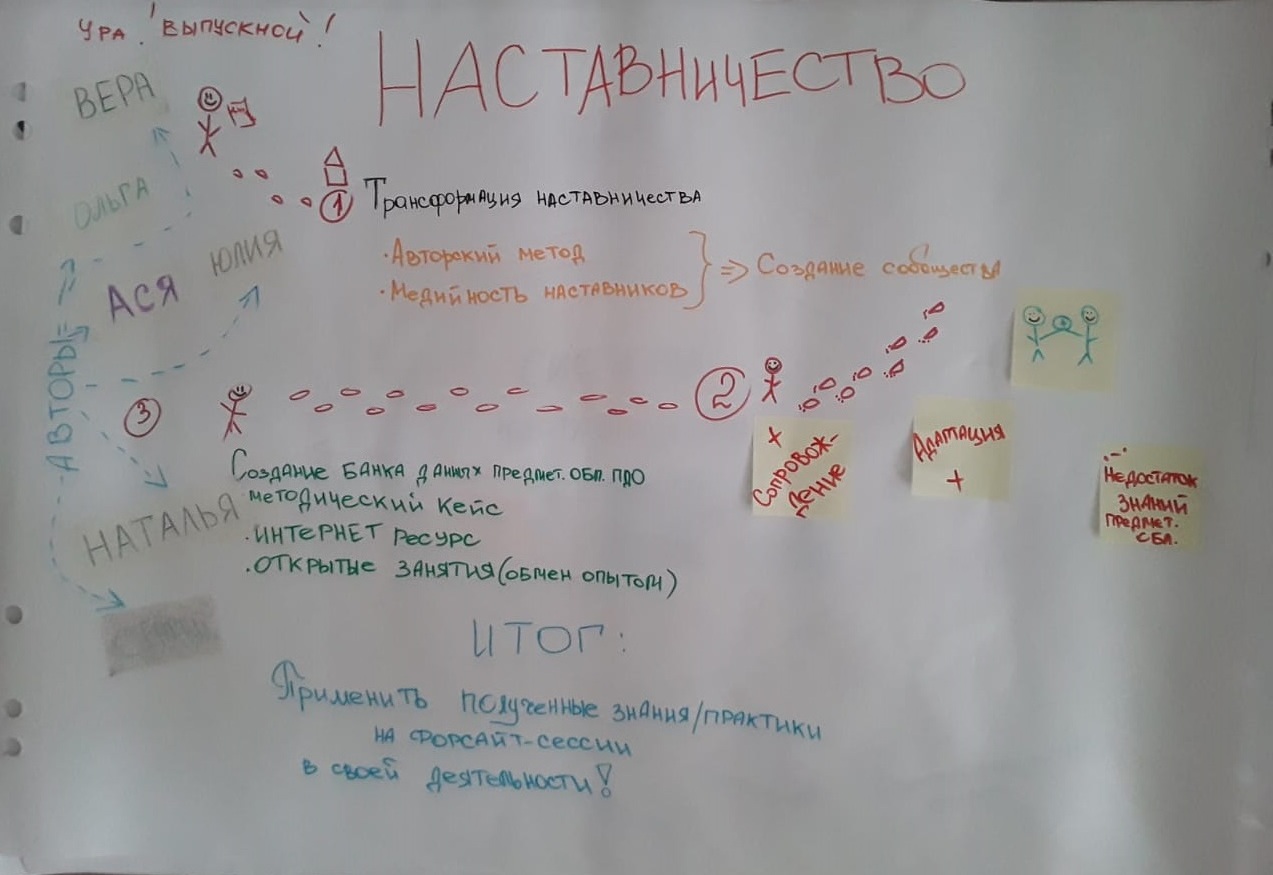 УРА! ВЫПУСКНОЙ!
НАСТАВНИЧЕСТВО
ВЕРА
ОЛЬГА
ЮЛИЯ
АСЯ
АВТОРЫ
НАТАЛЬЯ
1 Трансформация наставничества
· Авторский метод
· Медийность наставников
⇒ Создание сообщества
2
+
Сопровож-
ление
Адатация
+
-
Недостаток
знаний
предмет.
обл.
3
Создание банка данных предмет. обл. ПДО
· методический кейс
· интернет ресурс
· открытые занятия (обмен опытом)
ИТОГ:
Применить полученные знания/практики
на форсайт-сессии
в своей деятельности!